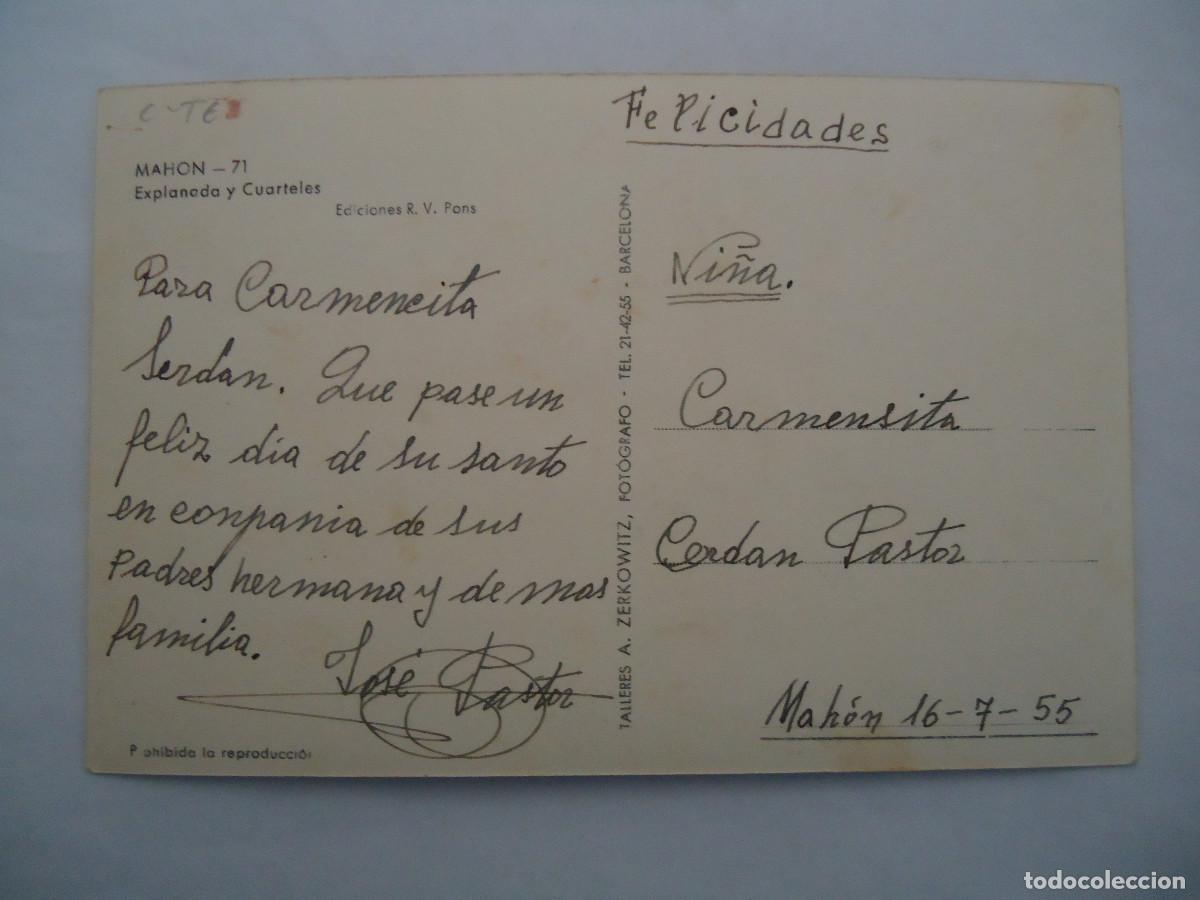 C-TE
MAHON – 71
Explanada y Cuarteles
Ediciones R. V. Pons
Para Carmencita
Serdan. Que pase un
feliz dia de su santo
en conpania de sus
Padres hermana y de mas
familia.
José Pastor
P ohibida la reproducció
TALLERES A. ZERKOWITZ, FOTÓGRAFO - TEL. 21-42-55 - BARCELONA
Felicidades
Niña.
Carmensita
Cerdan Pastor
Mahón 16-7-55
todocoleccion